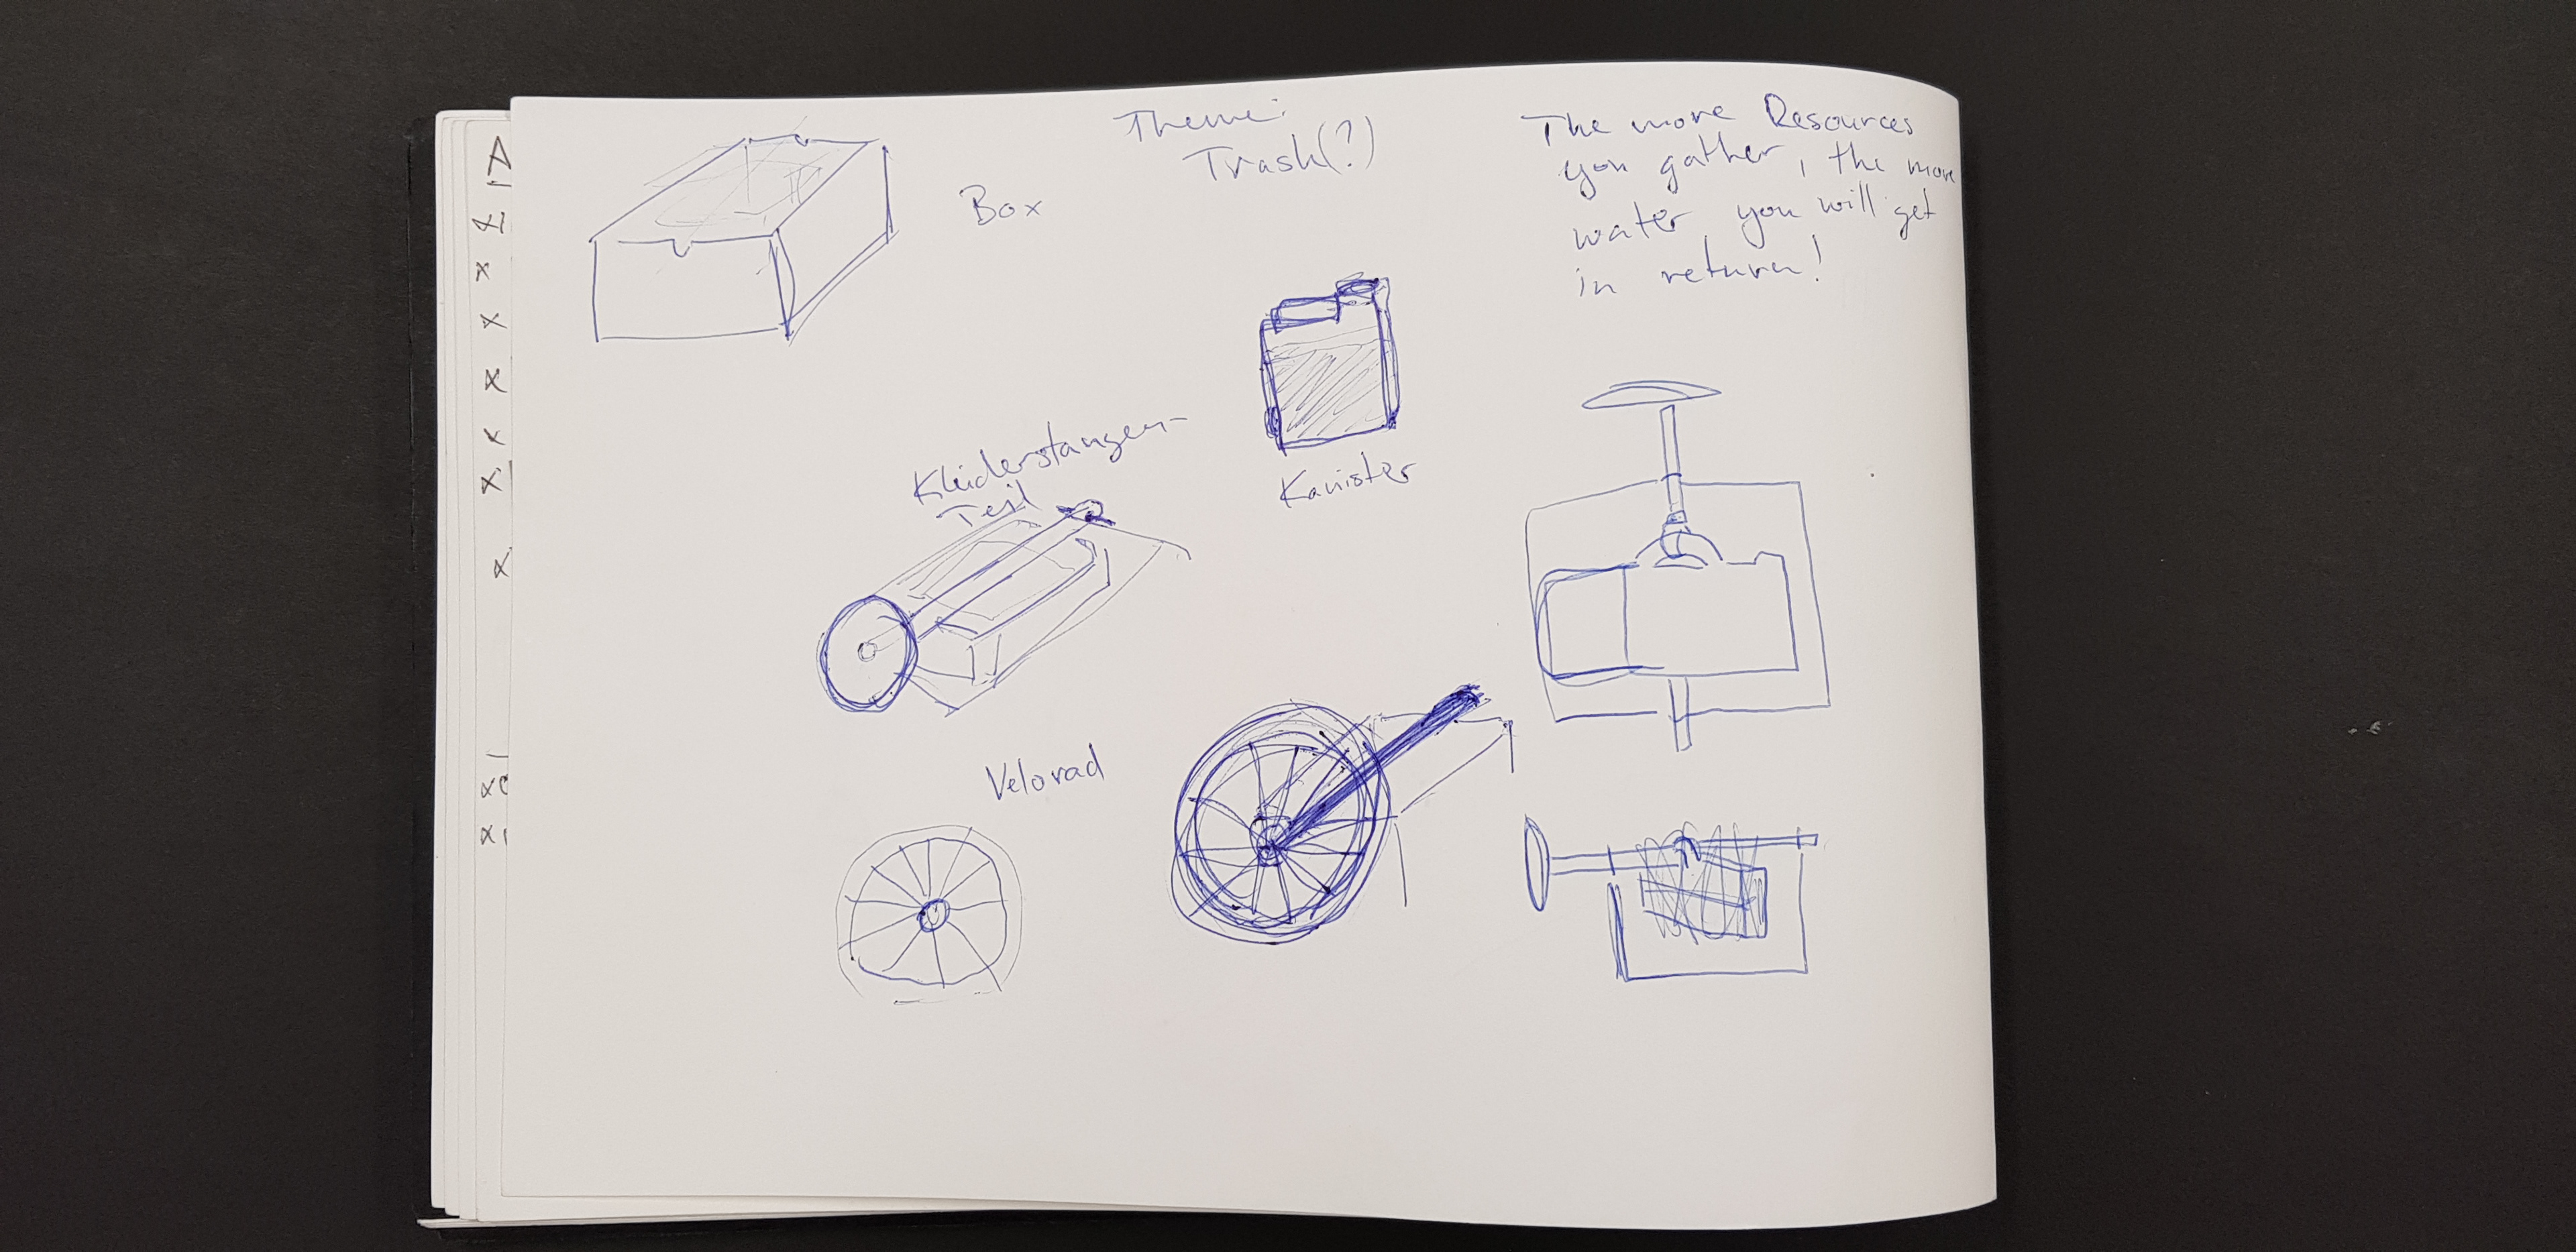 Theme:
Trash(?)
The more Resources
you gather, the more
water you will get
in return!
Box
Kleiderstangen-
Teil
Kanister
Velorad
A
x
x
x
x
x
x
x
x
x